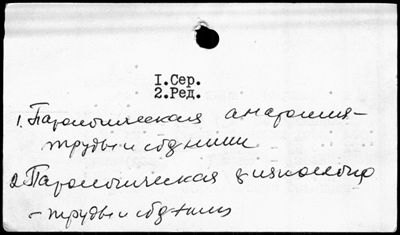 1.Сер.
2.Ред.
1. Патологическая анатомия-
труды и сборники
2. Патологическая физиология
- труды и сборники